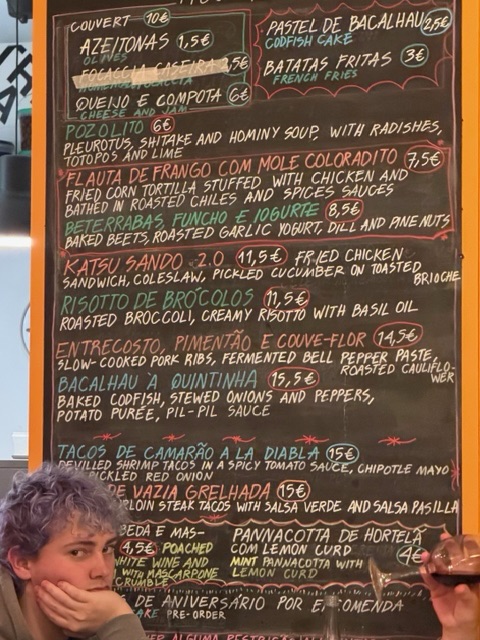 COUVERT 10€
AZEITONAS 1,5€
OLIVES
FOCACCIA CASEIRA 2,5€
HOMEMADE FOCACCIA
QUEIJO E COMPOTA 6€
CHEESE AND JAM
PASTEL DE BACALHAU 2,5€
CODFISH CAKE
BATATAS FRITAS 3€
FRENCH FRIES
POZOLITO 6€
PLEUROTUS, SHITAKE AND HOMINY SOUP, WITH RADISHES,
TOTOPOS AND LIME
FLAUTA DE FRANGO COM MOLE COLORADITO 7,5€
FRIED CORN TORTILLA STUFFED WITH CHICKEN AND
BATHED IN ROASTED CHILES AND SPICES SAUCES
BETERRABAS, FUNCHO E IOGURTE 8,5€
BAKED BEETS, ROASTED GARLIC YOGURT, DILL AND PINE NUTS
KATSU SANDO 2.0 11,5€ FRIED CHICKEN
SANDWICH, COLESLAW, PICKLED CUCUMBER ON TOASTED
BRIOCHE
RISOTTO DE BRÓCOLOS 11,5€
ROASTED BROCCOLI, CREAMY RISOTTO WITH BASIL OIL
ENTRECOSTO, PIMENTÃO E COUVE-FLOR 14,5€
SLOW-COOKED PORK RIBS, FERMENTED BELL PEPPER PASTE,
ROASTED CAULIFLO-
WER
BACALHAU À QUINTINHA 15,5€
BAKED CODFISH, STEWED ONIONS AND PEPPERS,
POTATO PURÉE, PIL-PIL SAUCE
TACOS DE CAMARÃO A LA DIABLA 15€
DEVILLED SHRIMP TACOS IN A SPICY TOMATO SAUCE, CHIPOTLE MAYO
PICKLED RED ONION
DE VAZIA GRELHADA 15€
RLOIN STEAK TACOS WITH SALSA VERDE AND SALSA PASILLA
BEDA E MAS-
4,5€ POACHED
WHITE WINE AND
WITH MASCARPONE
CRUMBLE
PANNACOTTA DE HORTELÃ
COM LEMON CURD 4€
MINT PANNACOTTA WITH
LEMON CURD
DE ANIVERSÁRIO POR E COMENDA
AKE PRE-ORDER
VER ALGUMA RESTRIÇ